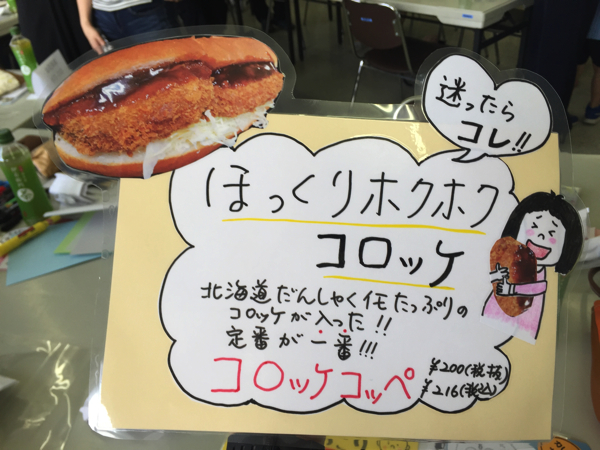 迷ったら
コレ!!
ほっくりホクホク
コロッケ
北海道だんしゃくイモたっぷりの
コロッケが入った!!
定番が一番!!!
コロッケコッペ
¥200(税抜)
¥216(税込)